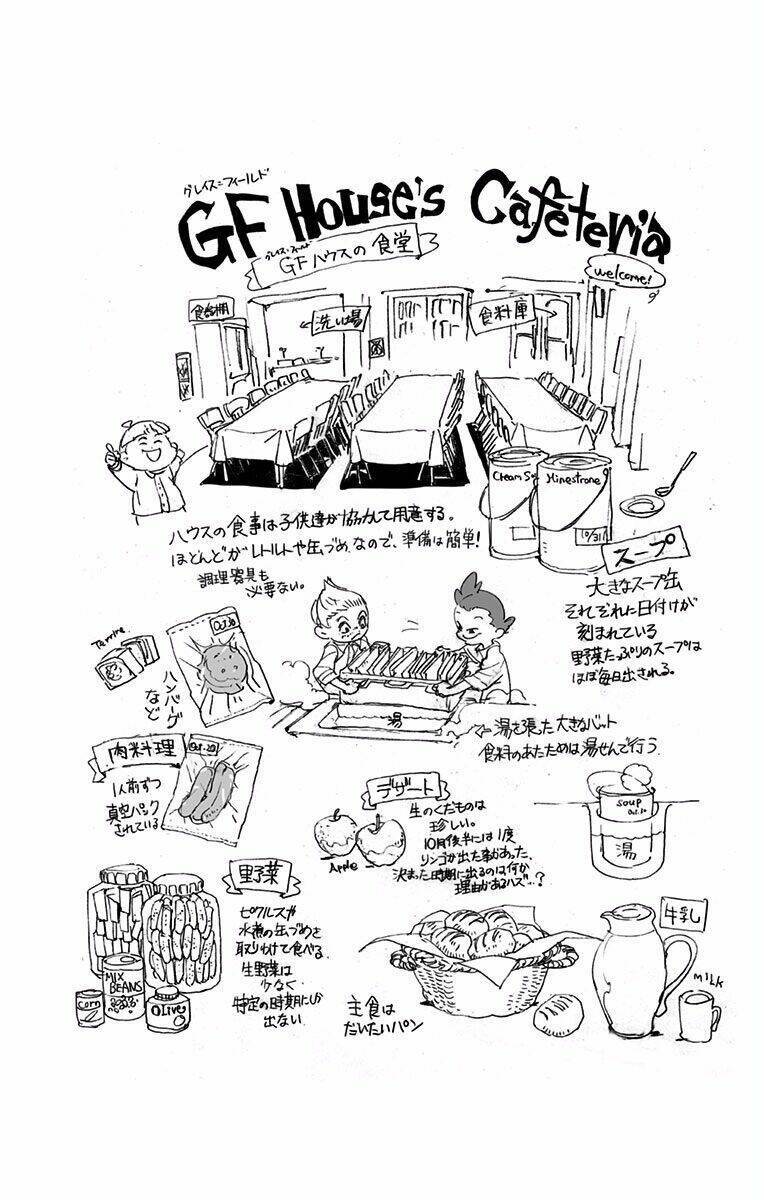 グレイス=フィールド
GF House's Cafeteria
グレイス=フィールド
GFハウスの食堂
welcome!
食器棚
←洗い場
食料庫
ハウスの食事は子供達が協力して用意する。
ほとんどがレトルトや缶づめなので、準備は簡単!
調理器具も
必要ない。
Cream So
Minestrone
10/31
スープ
大きなスープ缶
それぞれに日付けが
刻まれている
野菜たっぷりのスープは
ほぼ毎日出される。
Terrine
ハンバーグ
など
湯
←湯を張った大きなバット
食料のあたためは湯せんで行う
肉料理
1人前ずつ
真空パック
されている
デザート
生のくだものは
珍しい。
10月後半には1度
リンゴが出た事があった、
決まった時期に出るのは何か
理由があるハズ…?
Apple
soup
湯
野菜
ピクルスや
水煮の缶づめを
取りわけて食べる
生野菜は
少なく
特定の時期にしか
出ない
MIX
BEANS
Corn
Olive
主食は
だいたいパン
牛乳
MILK